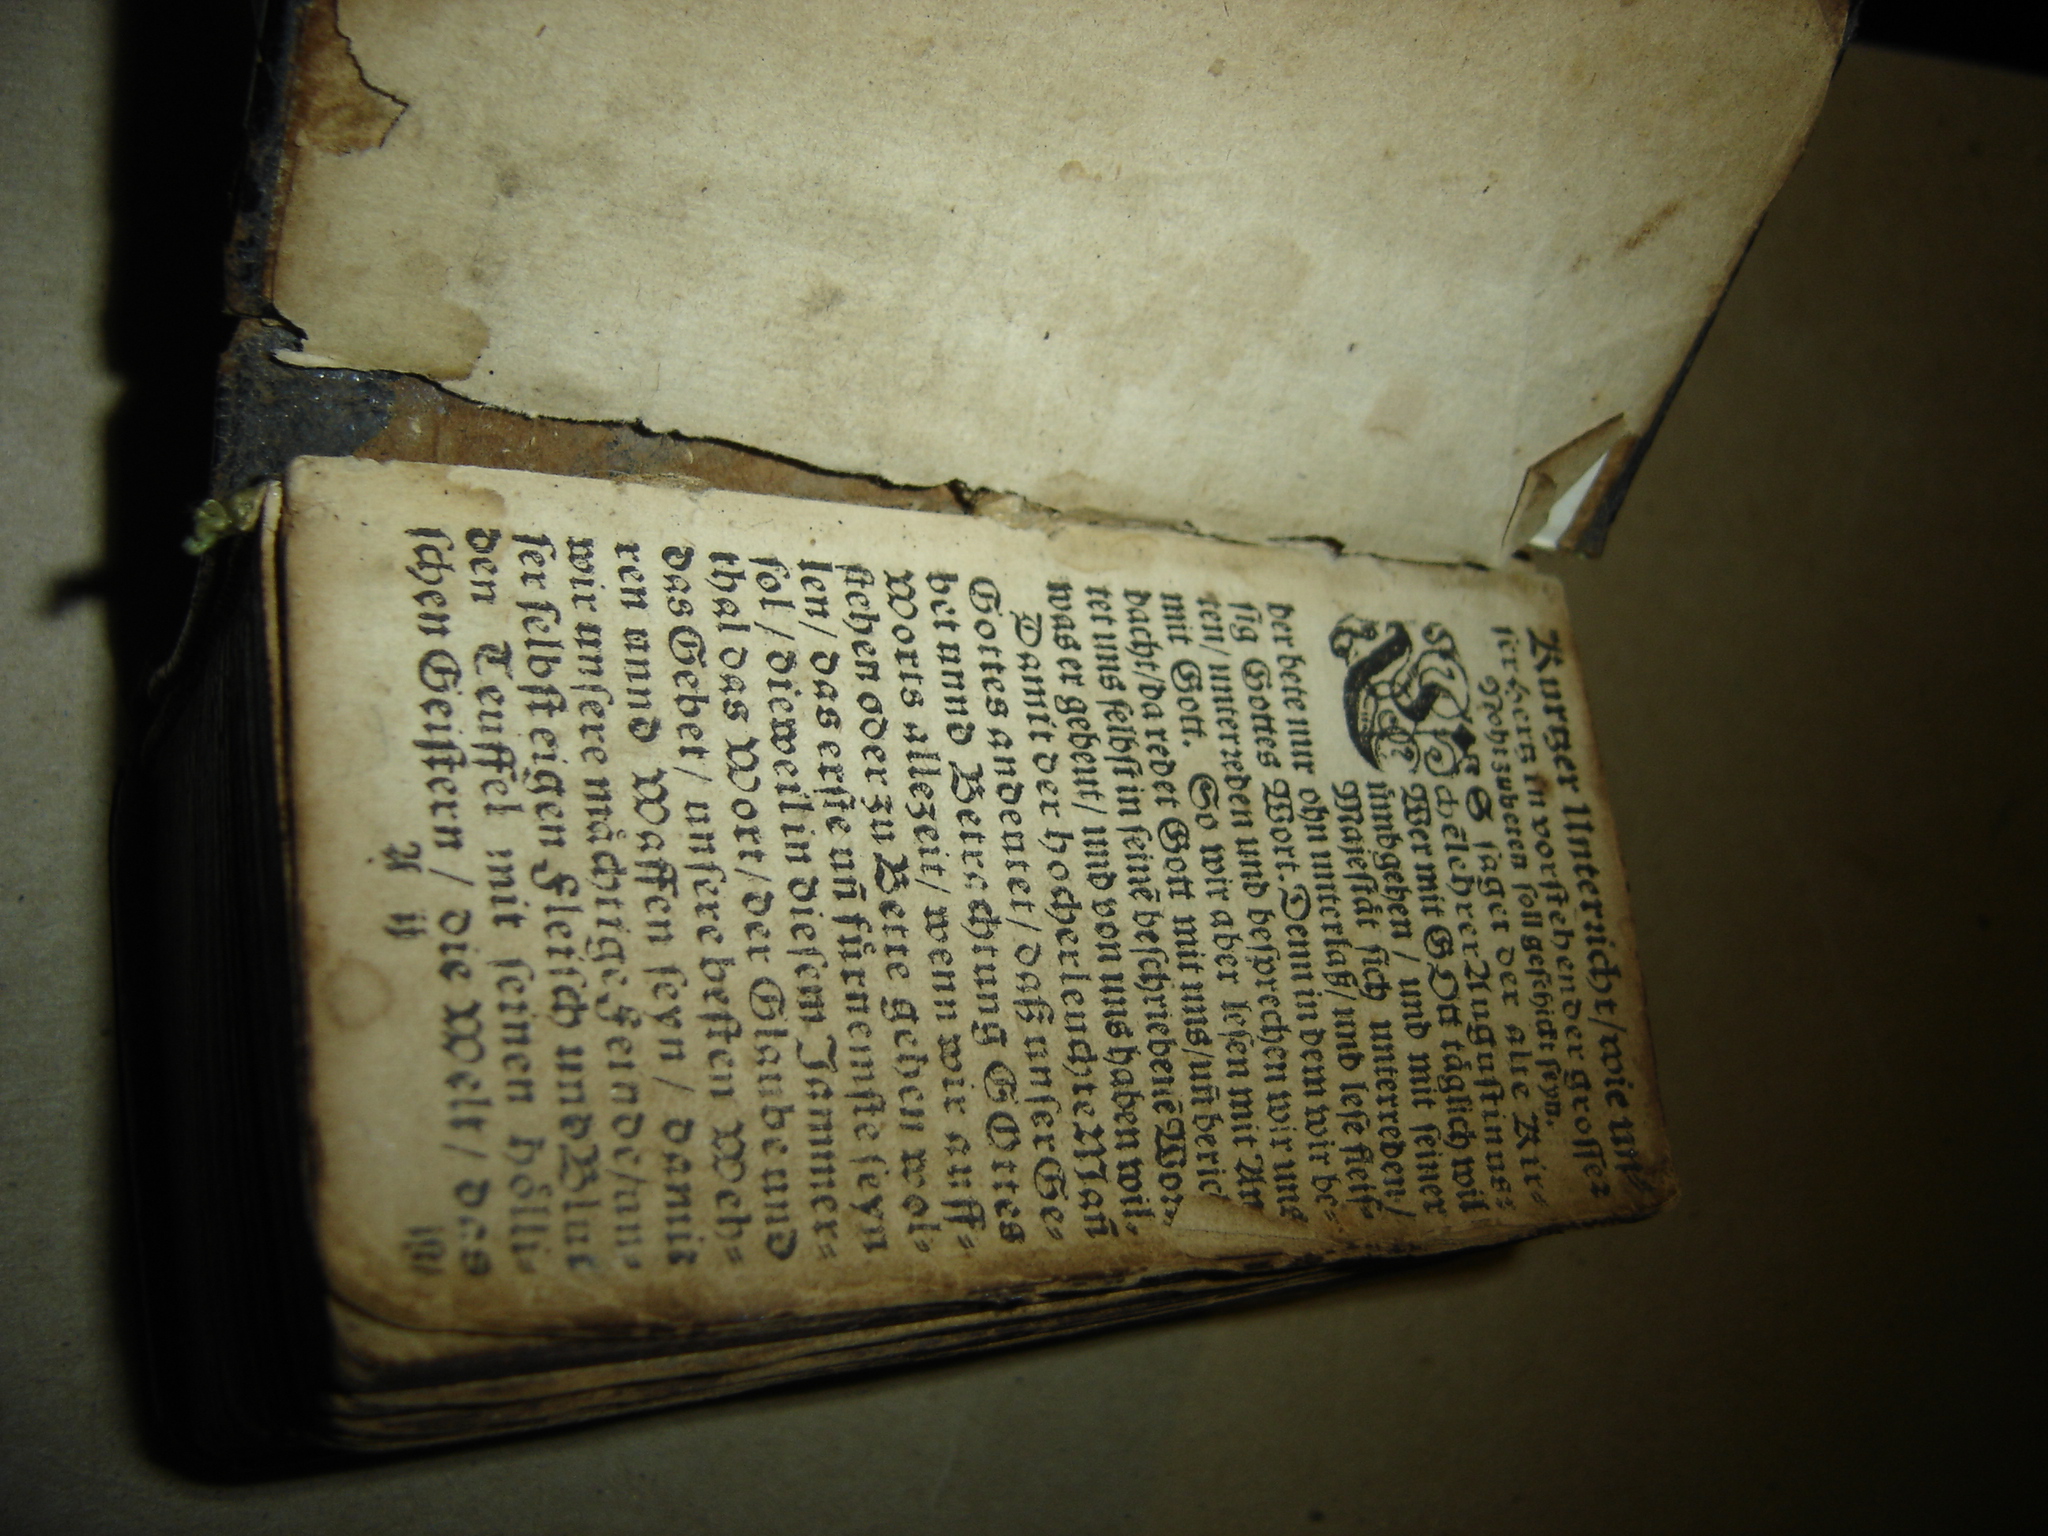 Kurtzer Unterricht/ wie un-
ser Hertz in vorstehender grosser
Noht zu beten soll geschickt seyn.
ES saget der alte Kir-
chēlehrer Augustinus:
Wer mit GOtt täglich wil
ümbgehen / und mit seiner
Majestät sich unterreden/
der bete nur ohn unterlaß/ und lese fleis-
sig Gottes Wort. Denn in dem wir be-
ten/ unterreden und besprechen wir uns
mit Gott. So wir aber lesen mit An
dacht/ da redet Gott mit uns/ uñ beric
tet uns selbst in seinē beschriebenē Wor
was er gebeut/ und von uns haben wil.
Damit der hocherleuchte Mañ
Gottes andeutet/ daß unser Ge-
bet unnd Betrachtung GOttes
Worts allezeit/ wenn wir auff-
stehen oder zu Bette gehen wol-
len/ das erste uñ fürnemste seyn
sol/ dieweil in diesem Jammer-
thal das Wort/ der Glaube und
das Gebet/ unsere besten Weh-
ren unnd Waffen seyn / damit
wir unsere mächtige Feinde/ un-
ser selbst eigen Fleisch und Blut
den Teuffel mit seinen hölli-
schen Geistern/ die Welt/ das
A ij